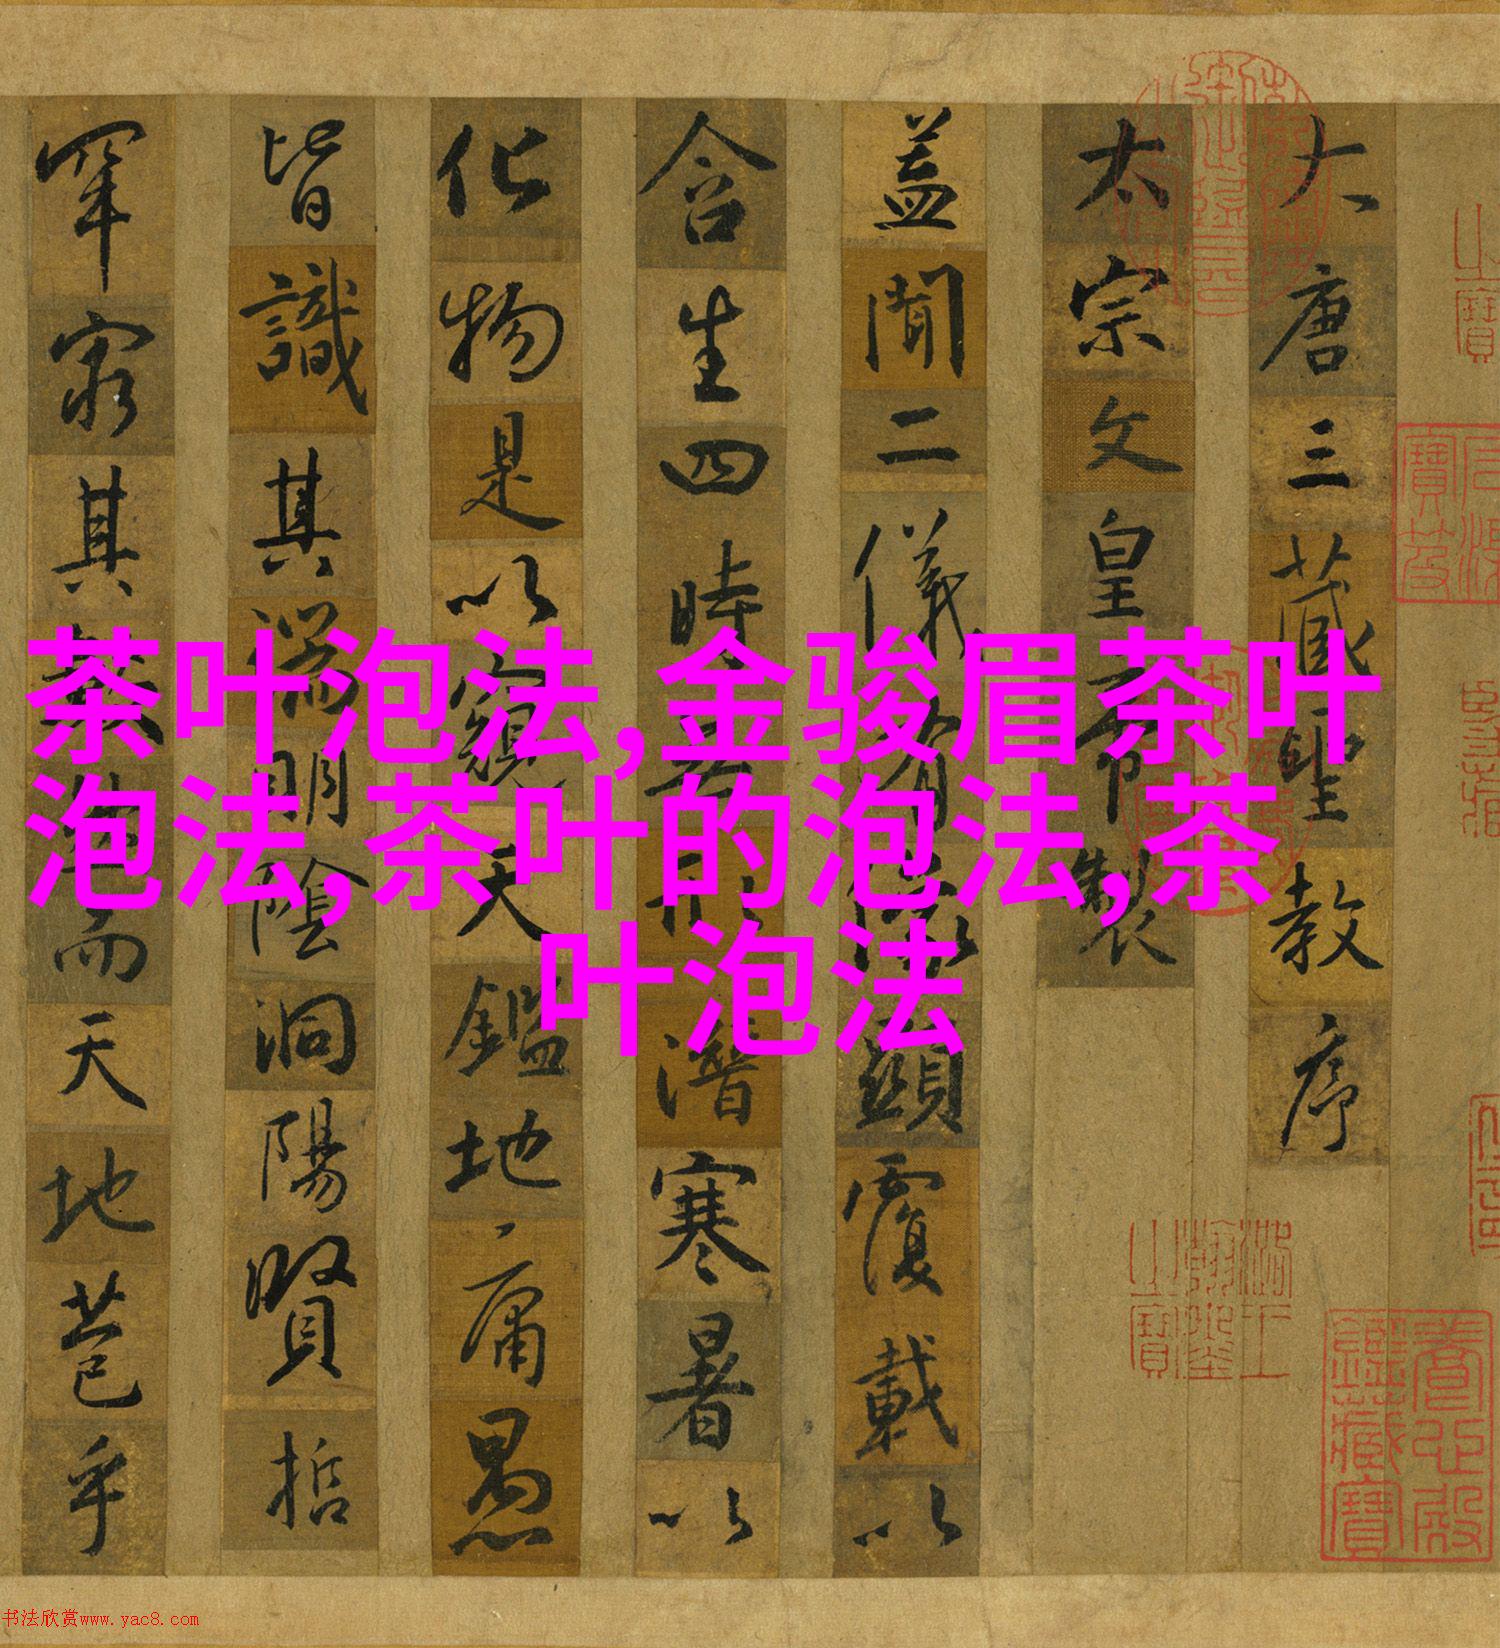 大唐三藏聖教序
太宗文皇帝製
蓋聞二儀有像顯覆載以
含生四時無形潛寒暑以
化物是以窺天鑑地庸愚
皆識其端明陰洞陽賢哲
罕窮其數而天地苞乎
茶叶泡法,金骏眉茶叶
泡法,茶叶的泡法,茶
叶泡法
书法欣赏www.yac8.com